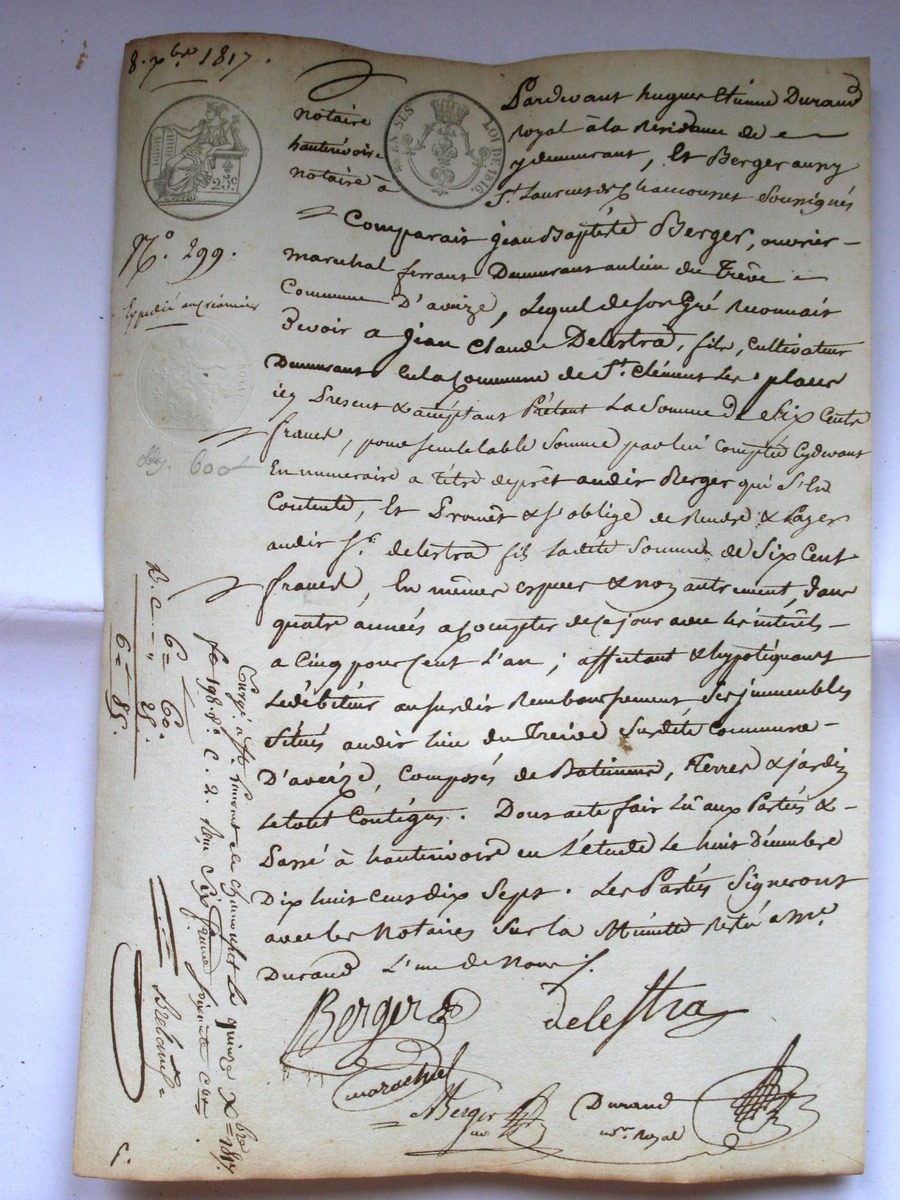 8. xbre 1817.
25c
EN SUS LOI DE 1816.
N.o 299.
Expédié au créancier
obg. 600
Pardevant hugues Etienne Durand
notaire royal à la Résidence de
hauterivoire y demeurant, Et Berger aussy
notaire à St. Laurent de Chamousset Soussignés
Comparait jean Baptiste Berger, ouvrier
marechal ferrant Demeurant au lieu du Treve
Commune D'aveize, Lequel de son Gré Reconnait
Devoir a jean Claude Delestra, fils, Cultivateur
Demeurant En la Commune de St. Clément Les places
icy Present & acceptant Prétant La Somme De Six Cents
francs, pour semblable Somme par lui Comptée Cydevant
En numeraire a Titre de prêt audit Berger qui S'En
Contente, Et Promet & s'oblige de Rendre & Payer
audit Sr. delestra fils ladite Somme de Six Cent
francs, En mêmes especes & non autrement, dans
quatre années a Compter de ce jour avec les intérêts
a Cinq pour Cent L'an ; affectant & hypotéquant
Le débiteur au susdit Remboursement Ses immeubles
Situés audit lieu du Treive Susdite Commune
D'aveize, Composés de Batiments, Terres & jardin
Le tout Contigus. Dont acte fait Lû aux Parties &
Passé à hauterivoire en L'étude Le huit Décembre
Dix huit Cent dix Sept. Les Parties Signeront
avec les Notaires Sur la Minutte Resté a Me.
Durand L'un de Nous /.
Berger
delestra
marechal
Berger
nre
Durand
nre. Royal
D. C.
6= 60.
25.
6= 85.
Enrgé. à St. Laurent de Chamousset Le quinze Xbre 1817
fo 198. Ro. C. 2. Reçu Six francs soixante Cmes